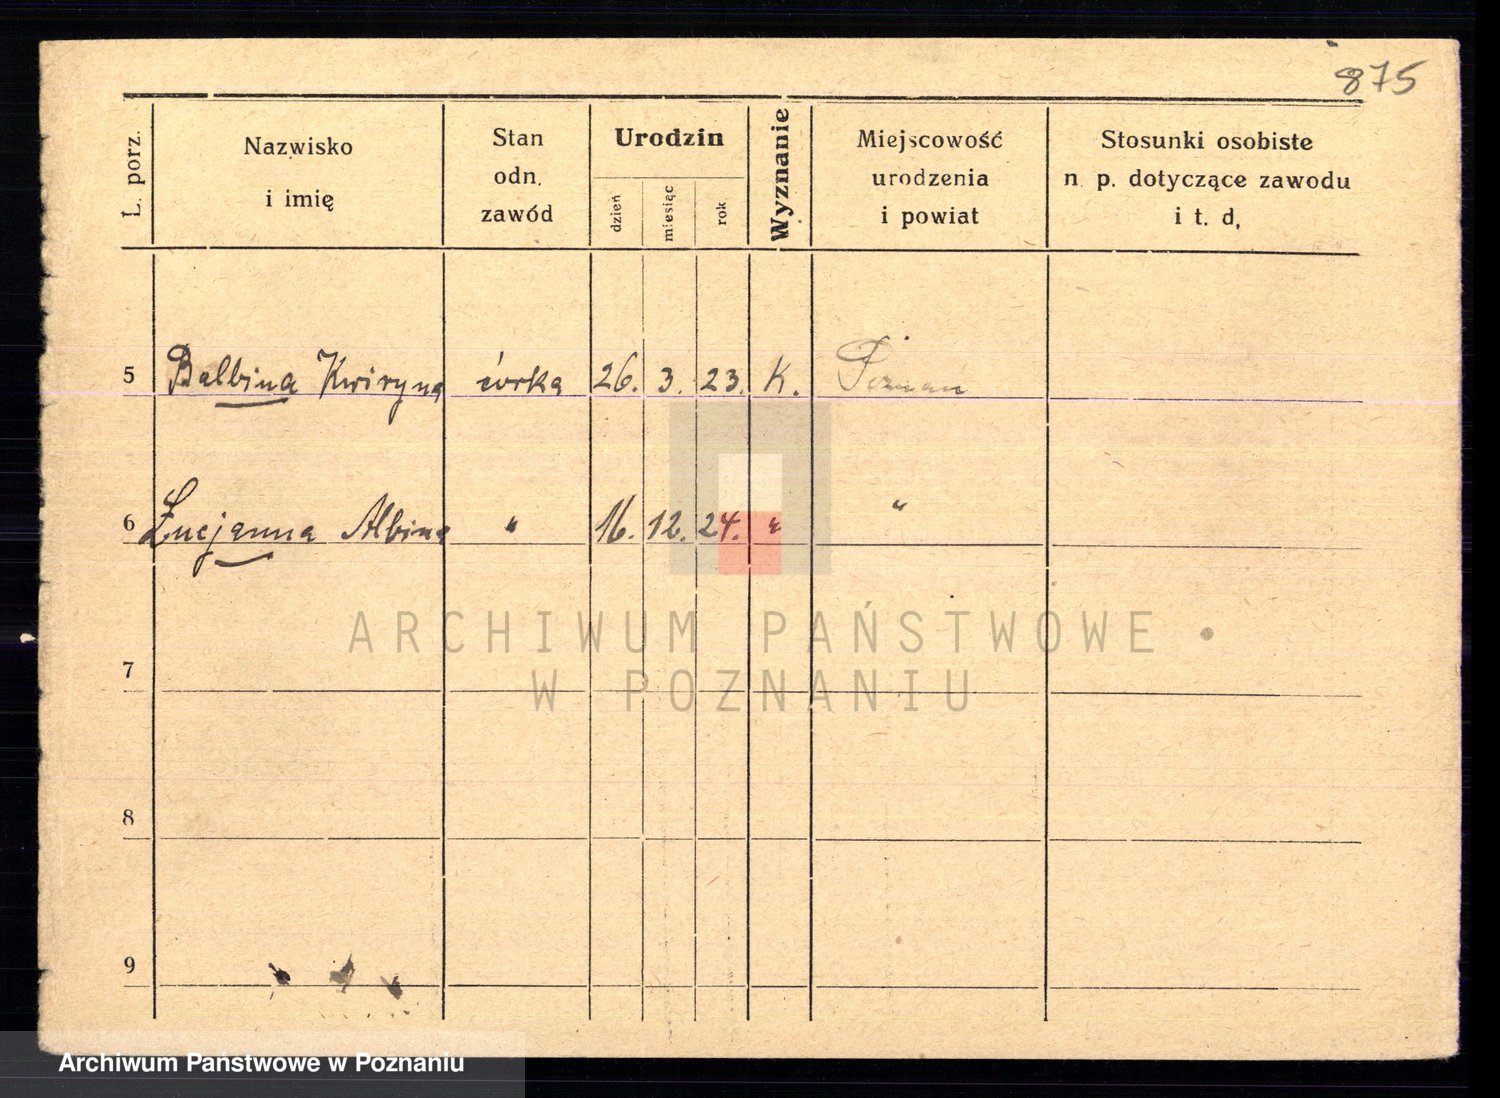 875
L. porz.
Nazwisko
i imię
Stan
odn.
zawód
Urodzin
dzień
miesiąc
rok
Wyznanie
Miejscowość
urodzenia
i powiat
Stosunki osobiste
n. p. dotyczące zawodu
i t. d,
5 Balbina Kwiryna córka 26. 3. 23. K. Poznań
6 Lucjanna Albina " 16. 12. 24. " "
ARCHIWUM PAŃSTWOWE
W POZNANIU
7
8
9
Archiwum Państwowe w Poznaniu